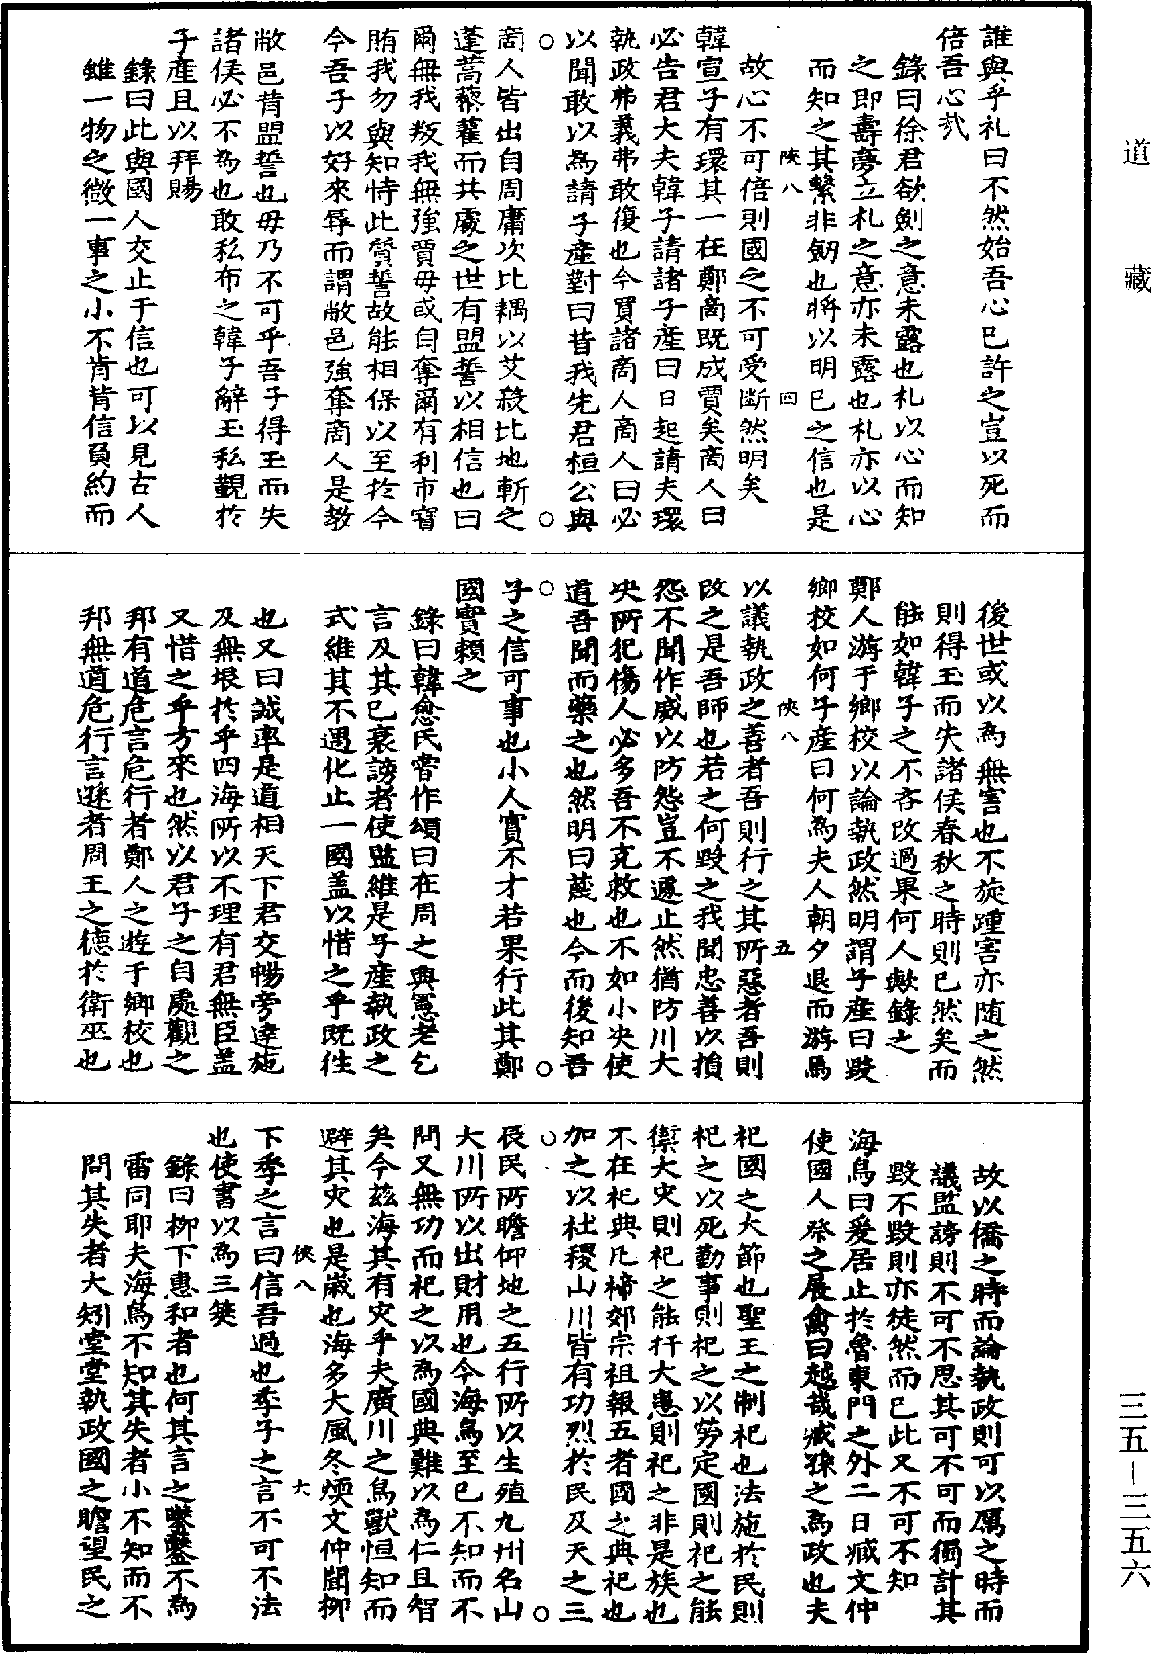 道藏
誰與乎札曰不然始吾心已許之豈以死而
倍吾心哉
錄曰徐君欲劍之意未露也札以心而知
之即壽夢立札之意亦未露也札亦以心
而知之其繫非劒也將以明已之信也是
陜八 四
故心不可倍則國之不可受斷然明矣
韓宣子有環其一在鄭商既成賈矣商人曰
必告君大夫韓子請諸子產曰日起請夫環
執政弗義弗敢復也今買諸商人商人曰必
以聞敢以為請子產對曰昔我先君桓公與
商人皆出自周庸次比耦以艾殺此地斬之
蓬蒿藜藿而共處之世有盟誓以相信也曰
爾無我叛我無強賈毋或匄奪爾有利市寶
賄我勿與知恃此質誓故能相保以至於今
今吾子以好來辱而謂敝邑強奪商人是教
敝邑背盟誓也毋乃不可乎吾子得玉而失
諸侯必不為也敢私布之韓子辭玉私覿於
子產且以拜賜
錄曰此與國人交止于信也可以見古人
雖一物之微一事之小不肯背信負約而
後世或以為無害也不旋踵害亦随之然
則得玉而失諸侯春秋之時則已然矣而
能如韓子之不吝改過果何人歟錄之
鄭人游于鄉校以論執政然明謂子產曰毀
鄉校如何子產曰何為夫人朝夕退而游焉
陜八 五
以議執政之善者吾則行之其所惡者吾則
改之是吾師也若之何毀之我聞忠善以損
怨不聞作威以防怨豈不遽止然猶防川大
决所犯傷人必多吾不克救也不如小决使
道吾聞而藥之也然明曰蔑也今而後知吾
子之信可事也小人實不才若果行此其鄭
國實賴之
錄曰韓愈氏嘗作頌曰在周之興養老乞
言及其已衰謗者使監維是子產執政之
式維其不遇化止一國盖以惜之乎既徃
也又曰誠率是道相天下君交暢旁達施
及無垠於乎四海所以不理有君無臣盖
又惜之乎方來也然以君子之自處觀之
邦有道危言危行者鄭人之遊于鄉校也
邦無道危行言遜者周王之德於衛巫也
故以僑之時而論執政則可以厲之時而
議監謗則不可不思其可不可而獨計其
毀不毀則亦徒然而已此又不可不知
海鳥曰爰居止於魯東門之外二日臧文仲
使國人祭之展禽曰越哉臧孫之為政也夫
祀國之大節也聖王之制祀也法施於民則
祀之以死勤事則祀之以勞定國則祀之能
禦大灾則祀之能扞大患則祀之非是族也
不在祀典凡禘郊宗祖報五者國之典祀也
加之以社稷山川皆有功烈於民及天之三
辰民所瞻仰地之五行所以生殖九州名山
大川所以出財用也今海鳥至已不知而不
問又無功而祀之以為國典難以為仁且智
矣今兹海其有灾乎夫廣川之鳥獸恒知而
避其灾也是歲也海多大風冬煖文仲聞柳
陜八 六
下季之言曰信吾過也季子之言不可不法
也使書以為三筴
錄曰柳下惠和者也何其言之鑿鑿不為
雷同耶夫海鳥不知其失者小不知而不
問其失者大矧堂堂執政國之瞻望民之
三五－三五六